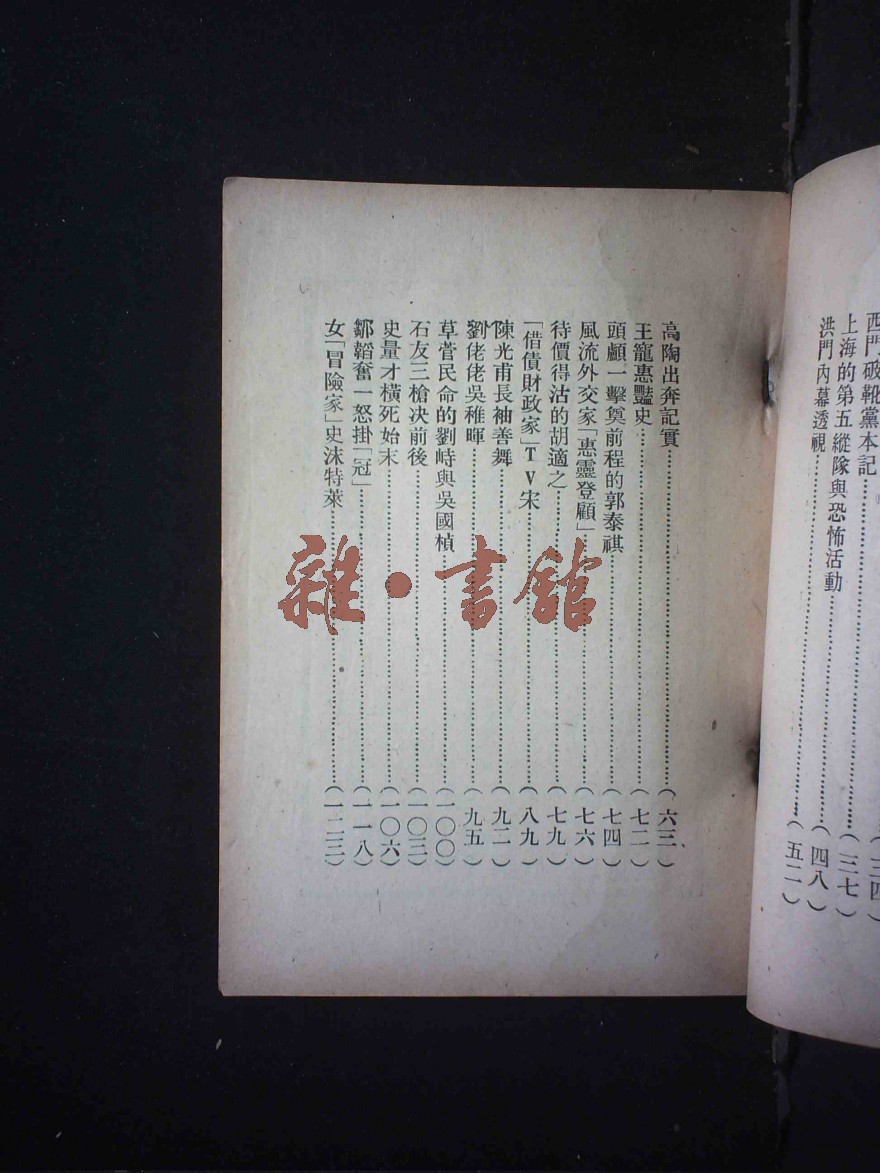 西門破靴黨本記……(三四)
上海的第五縱隊與恐怖活動……(三七)
洪門內幕透視……(四八)
(五二)
高陶出奔記實……(六三)
王寵惠豔史……(七二)
頭顱一擊奠前程的郭泰祺……(七四)
風流外交家「惠靈登顧」……(七六)
待價得沽的胡適之……(七九)
「借債財政家」TV宋……(八九)
陳光甫長袖善舞……(九二)
劉佬佬吳稚暉……(九五)
草菅民命的劉峙與吳國楨……(一〇〇)
石友三槍決前後……(一〇三)
史量才橫死始末……(一〇六)
鄒韜奮一怒掛「冠」……(一一八)
女「冒險家」史沫特萊……(一二三)
雜·書館